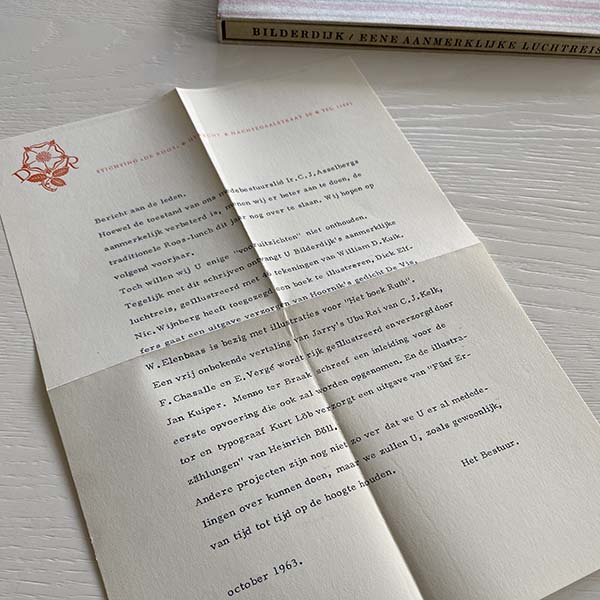 BILDERDIJK / EENE AANMERKLIJKE LUCHTREIS
D R
STICHTING DE ROOS & UTRECHT & NACHTEGAALSTRAAT & TEL
Bericht aan de leden.
Hoewel de toestand van ons medebestuurslid Ir. C.J. Asselbergs
aanmerkelijk verbeterd is, menen wij er beter aan te doen, de
traditionele Roos-lunch dit jaar nog over te slaan. Wij hopen op
volgend voorjaar.
Toch willen wij U enige "vooruitzichten" niet onthouden.
Tegelijk met dit schrijven ontvangt U Bilderdijk's aanmerklijke
luchtreis, geïllustreerd met tekeningen van William D. Kuik.
Nic. Wijnberg heeft toegezegd een boek te illustreren, Dick Elf-
fers gaat een uitgave verzorgen van Hoornik's gedicht De Vis,
W. Elenbaas is bezig met illustraties voor "Het boek Ruth".
Een vrij onbekende vertaling van Jarry's Ubu Roi van C.J. Kelk,
F. Chasalle en E. Vergé wordt rijk geïllustreerd en verzorgd door
Jan Kuiper. Menno ter Braak schreef een inleiding voor de
eerste opvoering die ook zal worden opgenomen. En de illustra-
tor en typograaf Kurt Löb verzorgt een uitgave van "Fünf Er-
zählungen" van Heinrich Böll.
Andere projecten zijn nog niet zo ver dat we U er al mede-
delingen over kunnen doen, maar we zullen U, zoals gewoonlijk,
van tijd tot tijd op de hoogte houden.
Het Bestuur.
october 1963.